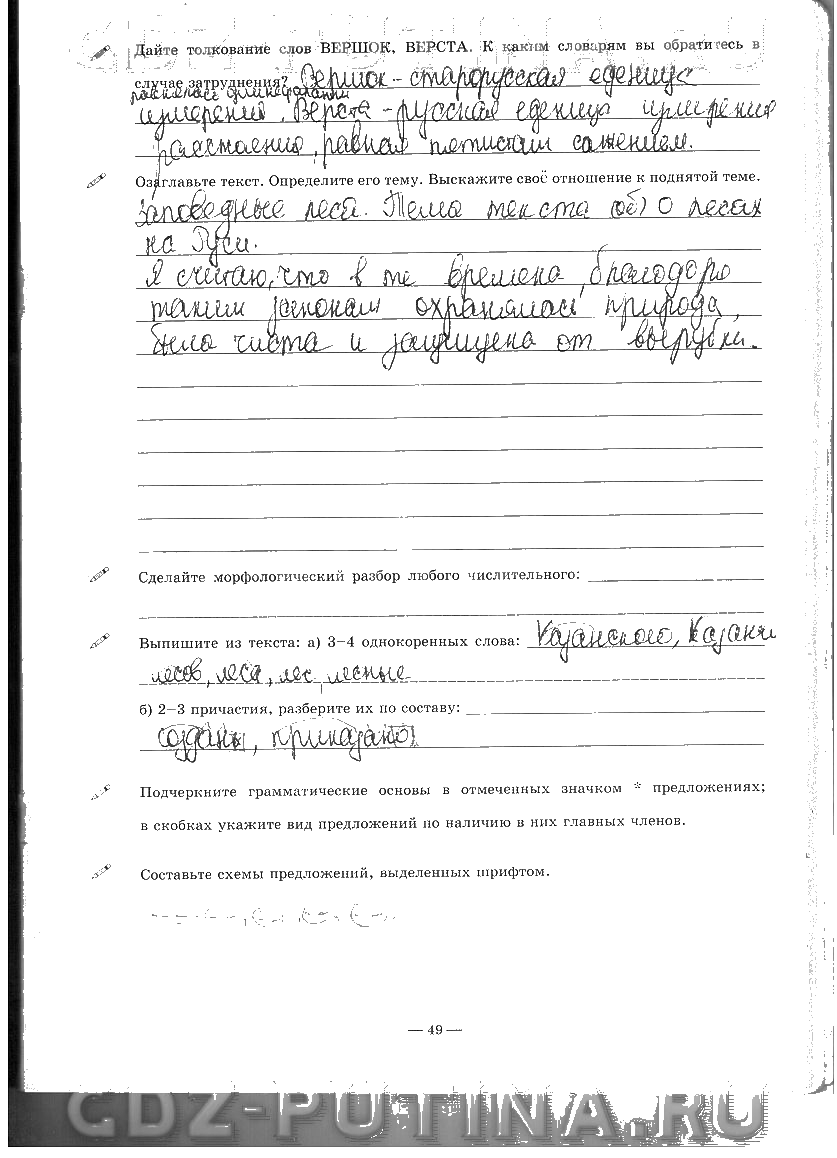 Дайте толкование слов ВЕРШОК, ВЕРСТА. К каким словарям вы обратитесь в
случае затруднения? Вершок - старорусская еденица
измерения. Верста - русская еденица измерения
расстояния, равная пятистам сажением.
Озаглавьте текст. Определите его тему. Выскажите своё отношение к поднятой теме.
Заповедные леса. Тема текста (об) о лесах
на Руси.
Я считаю, что в те времена, благодоря
таким законам охранялась природа,
была чиста и защищена от вырубки.
Сделайте морфологический разбор любого числительного:
Выпишите из текста: а) 3–4 однокоренных слова: Казанского, Казани
лесов, леса, лес, лесные
б) 2–3 причастия, разберите их по составу:
созданы, приказано
Подчеркните грамматические основы в отмеченных значком * предложениях;
в скобках укажите вид предложений по наличию в них главных членов.
Составьте схемы предложений, выделенных шрифтом.
— 49 —
GDZ-PUTINA.RU